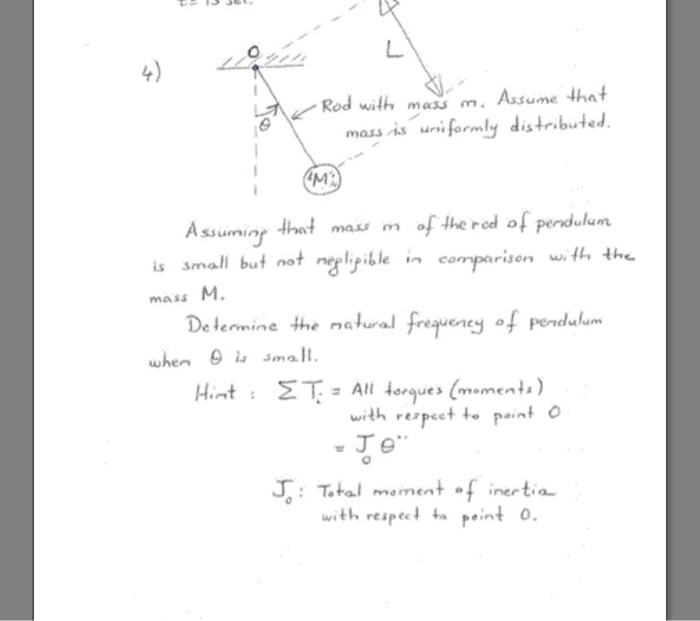 t= 15 sec.
O
L
4)
Rod with mass m. Assume that
θ
mass is uniformly distributed.
M
Assuming that mass m of the rod of pendulum
is small but not negligible in comparison with the
mass M.
Determine the natural frequency of pendulum
when θ is small.
Hint : ΣTᵢ = All torques (moments)
with respect to point O
= J₀ θ¨
J₀ : Total moment of inertia
with respect to point O.